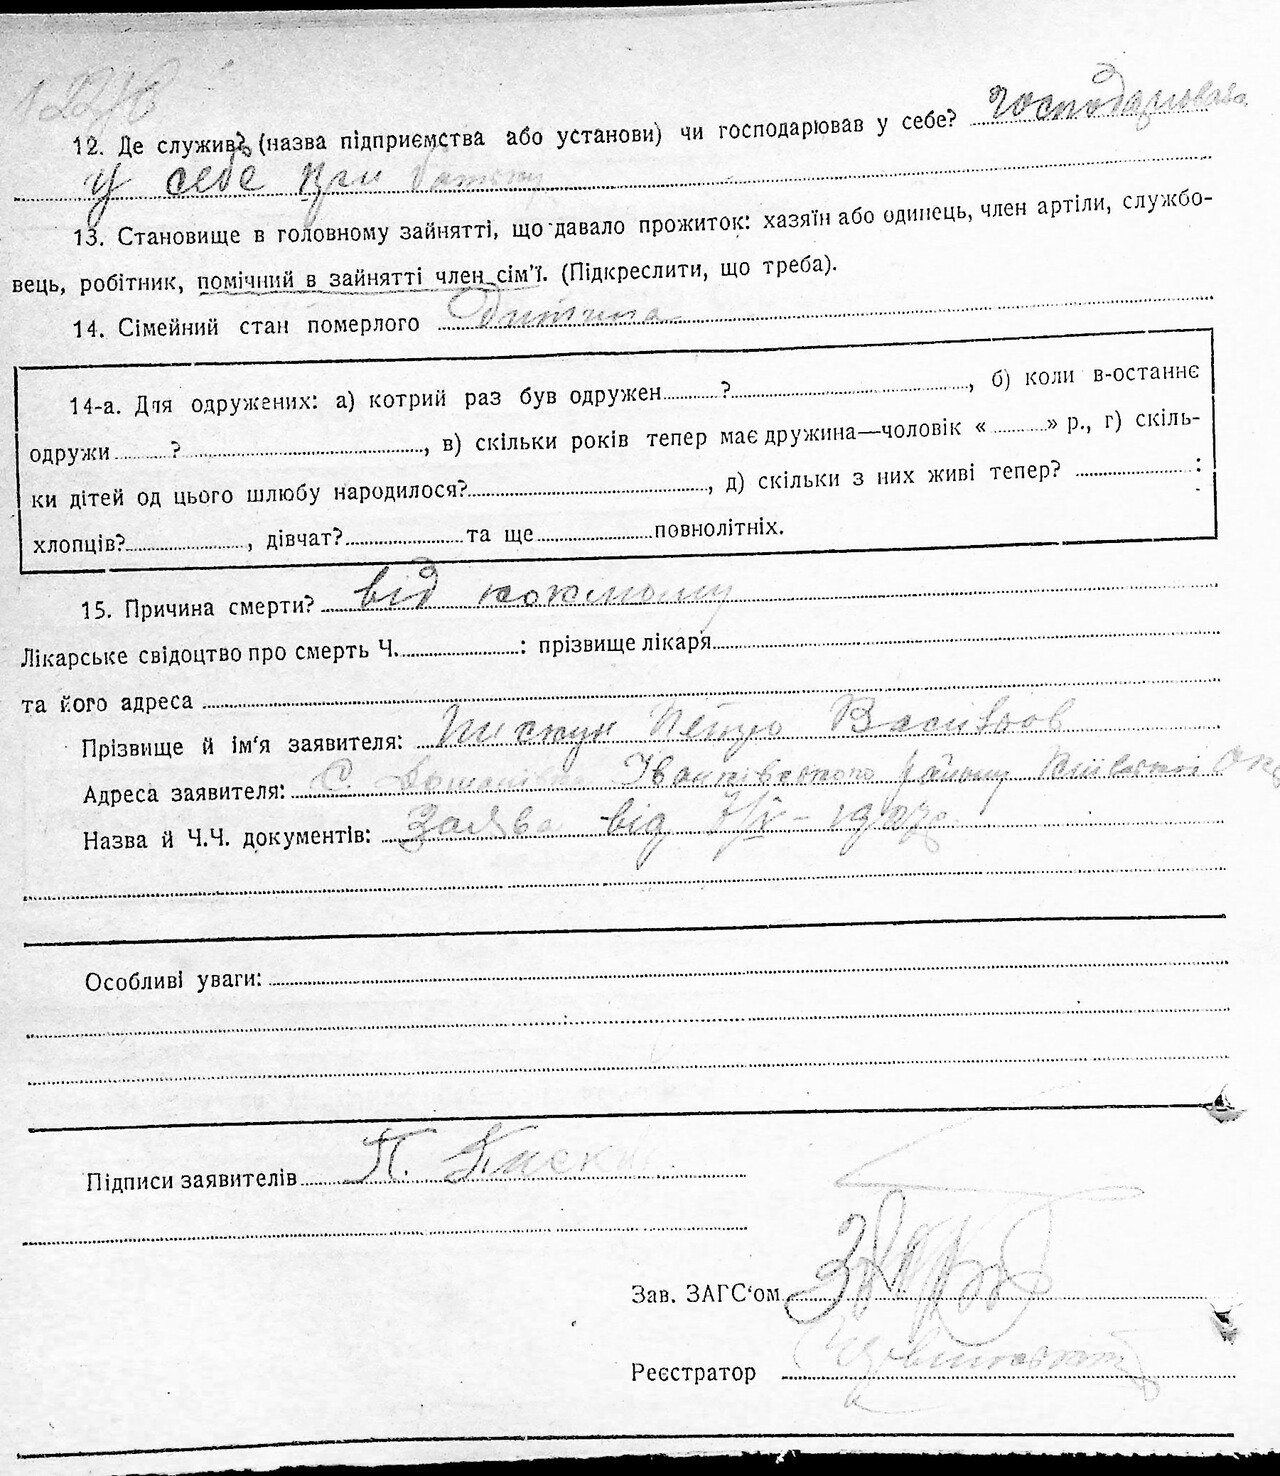 12. Де служив? (назва підприємства або установи) чи господарював у себе? господарювала
у себе при батьку
13. Становище в головному зайнятті, що давало прожиток: хазяїн або одинець, член артіли, службо-
вець, робітник, помічний в зайнятті член сім'ї. (Підкреслити, що треба).
14. Сімейний стан померлого дитина
14-а. Для одружених: а) котрий раз був одружен.........?........................, б) коли в-останнє
одружи.........?........................, в) скільки років тепер має дружина—чоловік «.........» р., г) скіль-
ки дітей од цього шлюбу народилося?........................, д) скільки з них живі тепер? ..................:
хлопців?.................., дівчат?..................та ще..................повнолітніх.
15. Причина смерти? від
Лікарське свідоцтво про смерть Ч...................: прізвище лікаря........................
та його адреса
Прізвище й ім'я заявителя: Пискун Петро Васильов
Адреса заявителя: С. Іванківського району Київської Окр
Назва й Ч.Ч. документів: Заява від 7/IV – 1927р.
Особливі уваги:
Підписи заявителів П. Писку
Зав. ЗАГС'ом
Реєстратор